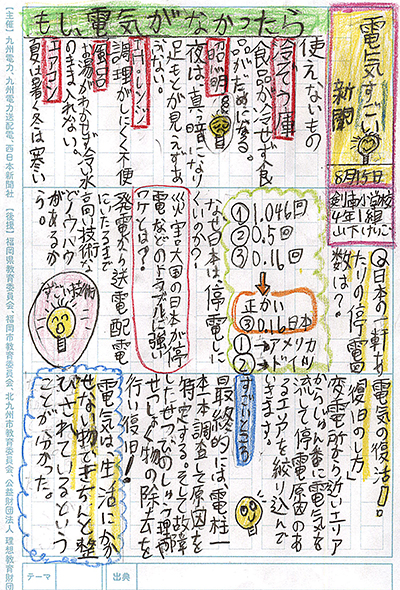 電気すごい
新聞
8月15日
剣南小学校
4年1組
山下けんご
もし電気がなかったら
使えないもの
冷ぞう庫
食品が冷せず食
品がだめになる。
照明
夜は真っ暗になり
足もとが見えずあ
ぶない。
電子レンジ
調理がしにくく不便
風呂
お湯がわかせず冷い水
のままあびない。
エアコン
夏は暑く冬は寒い
Q日本の一軒あ
たりの停電回
数は?
①1.046回
②0.5回
③0.16回
正かい
③0.16日本
①→アメリカ
②→ドイツ
なぜ日本は停電しに
くいのか?
災害大国の日本が停
電などのトラブルに強い
ワケとは?
発電から送電配電
にいたるまで
高い技術な
どノウハウ
があるか
ら。
すごい技術
電気の復活!!
「復旧のし方」
変電所から近いエリア
からじゅん番に電気を
流して停電原因のあ
るエリアを絞り込んで
いきます。
すごいところ
最終的には電柱一
本一本調査して原因を
特定する。そして故障
したせつびのしゅう理や
せっしょく物の除去を
行い復旧!
電気は、生活にかか
せない物できちんと整
びされているという
ことが分かった。
【主催】九州電力、九州電力送配電、西日本新聞社 【後援】福岡県教育委員会、福岡市教育委員会、北九州市教育委員会、公益財団法人 理想教育財団
テーマ
出典